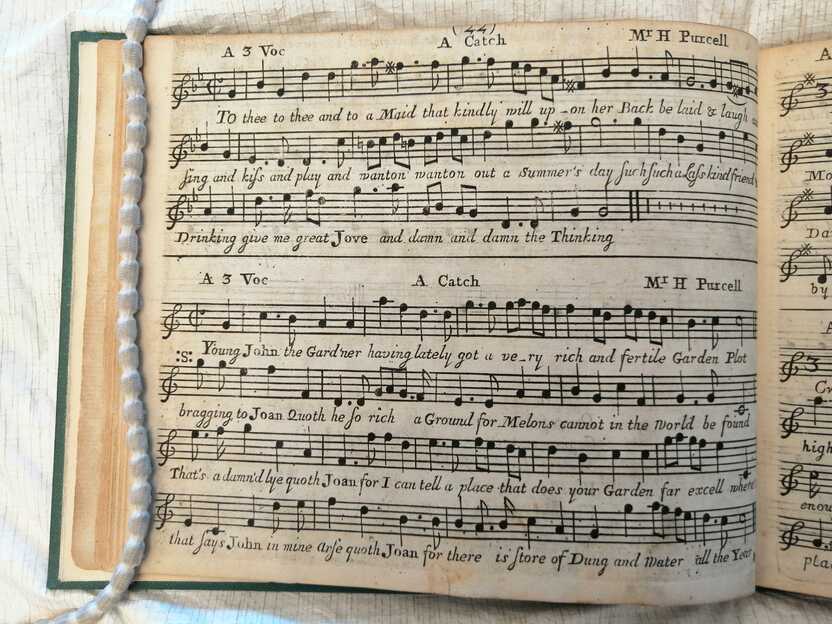 (44)
A 3 Voc A Catch Mr H Purcell
To thee to thee and to a Maid that kindly will up-on her Back be laid & laugh
sing and kiſs and play and wanton wanton out a Summer's day ſuch ſuch a Laſs kind friend
Drinking give me great Jove and damn and damn the Thinking
A 3 Voc A Catch Mr H Purcell
:S: Young John the Gard'ner having lately got a ve-ry rich and fertile Garden Plot
bragging to Joan Quoth he ſo rich a Ground for Melons cannot in the World be found
That's a damn'd lye quoth Joan for I can tell a place that does your Garden far excell where
that ſays John in mine Arſe quoth Joan for there is ſtore of Dung and Water all the Year
A
3
Mo
Da
by
A
3
high
enou
pla